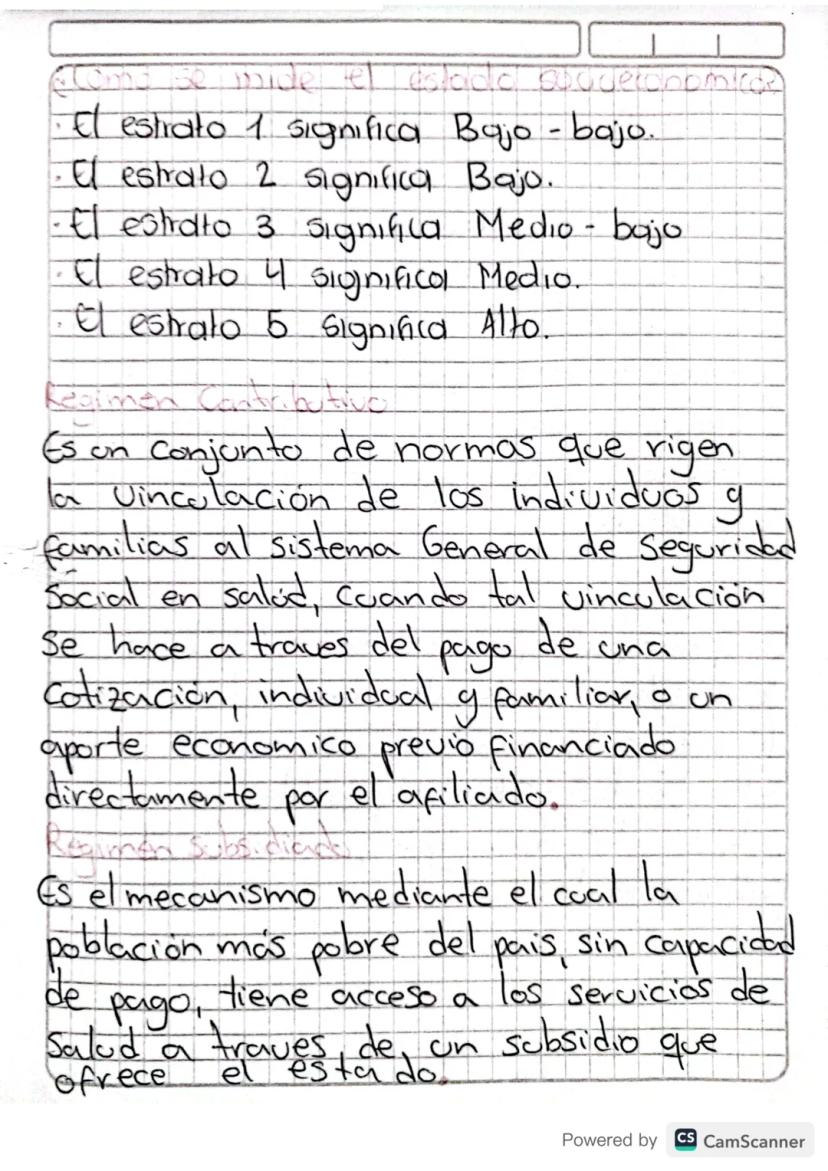 ¿Como se mide el estado socioeconomico?
· El estrato 1 significa Bajo - bajo.
· El estrato 2 significa Bajo.
· El estrato 3 significa Medio - bajo
· El estrato 4 significa Medio.
· El estrato 5 significa Alto.
Regimen Contributivo
Es un conjunto de normas que rigen
la vinculación de los individuos y
familias al sistema General de Seguridad
Social en salud, cuando tal vinculación
se hace a traves del pago de una
cotización, individual y familiar, o un
aporte economico previo financiado
directamente por el afiliado.
Regimen Subsidiado
Es el mecanismo mediante el cual la
población más pobre del pais, sin capacidad
de pago, tiene acceso a los servicios de
salud a traves, de, un subsidio que
ofrece el estado.
Powered by CS CamScanner